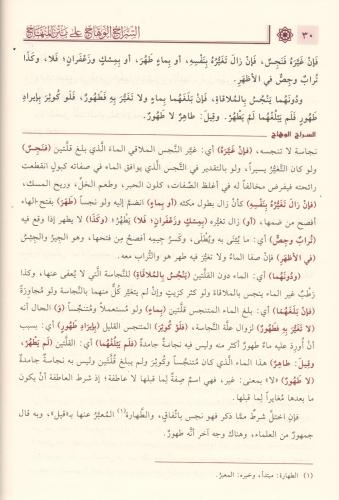 ٣٠ السراج الوهاج على متن المنهاج
فَإِنْ غَيَّرَهُ فَنَجِسٌ، فَإِنْ زَالَ تَغَيُّرُهُ بِنَفْسِهِ، أو بِماءٍ طَهُرَ، أو بِمِسْكٍ وزَعْفَرانٍ؛ فَلا، وكَذَا
تُرابٌ وجِصٌّ في الأظْهَرِ.
ودُونَهُما يَنْجُسُ بِالمُلاقاةِ، فَإِنْ بَلَغَهُما بِماءٍ ولا تَغَيُّرَ بِهِ فَطَهُورٌ، فَلَو كُوثِرَ بِإيرادِ
طَهُورٍ فَلَم يَبْلُغْهُما لَمْ يَطْهُرْ. وقِيلَ: طاهِرٌ لا طَهُورٌ.
السراج الوهاج
نجاسة لا تنجسه، (فَإِنْ غَيَّرَهُ) أي: غيّر النَّجس الملاقي الماءَ الذي بلغ قلَّتين (فَنَجِسٌ)
ولو كان التَّغيُّر يسيراً، ولو بالتقدير في النَّجس الذي يوافق الماء في صفاته كبولٍ انقطعت
رائحته فيفرض مخالفاً له في أغلظ الصِّفات، كلون الحبر، وطعم الخلِّ، وريح المسك،
(فَإِنْ زالَ تَغَيُّرُهُ بِنَفْسِهِ) كأن زال بطول مكثه (أو بِماءٍ) انضمَّ إليه ولو نجساً (طَهُرَ) بفتح الهاء
أفصح من ضمها، (أو) زال تغيّره (بِمِسْكٍ وزَعْفَرانٍ؛ فَلا) يَطْهُر؛ (وكَذا) لا يطهر إذا وقع فيه
(تُرابٌ وجِصٌّ) أي: ما يُبْنَى به ويُطْلَى، وكَسرُ جيمه أفصحُ مِن فتحها، وهو الجِيرُ والجِبْسُ
(في الأظْهَرِ) فإن صفا الماءُ ولا تغيُّرَ فيه طهر هو والتّراب معه.
(ودُونَهُما) أي: الماء دون القلَّتين (يَنْجُسُ بِالمُلاقاةِ) للنَّجاسة التي لا يُعفى عنها، وكذا
رَطْبُ غيرِ الماء ينجس بالملاقاة ولو كثر كزيتٍ وإنْ لم يتغيّر كلٌّ منهما بالنَّجاسة ولو لمجاورةٍ
(فَإِنْ بَلَغَهُما) أي: بلغ الماء المتنجس قلَّتين (بِماءٍ) ولو مُستعملاً ومتنجساً (وَ) الحال أنه
(لا تَغَيُّرَ بِهِ فَطَهُورٌ) لزوال علَّة النَّجاسة، (فَلَوْ كُوثِرَ) المتنجس القليل (بِإيرادِ طَهُورٍ) أي: بسبب
أنْ أُورِدَ عليه ماءٌ طهورٌ أكثر منه وليس فيه نجاسةٌ جامدةٌ (فَلَم يَبْلُغْهُما) أي: القلَّتين (لَمْ يَطْهُرْ،
وقِيلَ: طاهِرٌ) هذا الماء الذي كان متنجّساً وكُوثِرَ ولم يبلغ قُلَّتين وليس به نجاسةٌ جامدةٌ
(لا طَهُورٌ) «لا» بمعنى: غير، فهي اسمٌ صِفةٌ لما قبلها لا عاطفة؛ إذ شرط العاطفة أنْ يكون
ما بعدها مُغايراً لما قبلها.
فإن اختلَّ شرطٌ ممَّا ذكر فهو نجس باتِّفاقٍ، والطّهارة(١) المعبَّرُ عنها بـ«قيل»، وبه قال
جمهورٌ من العلماء، وهناك وجه آخر أنه طهورٌ.
(١) الطهارة: مبتدأ، وخبره: المعبّر.